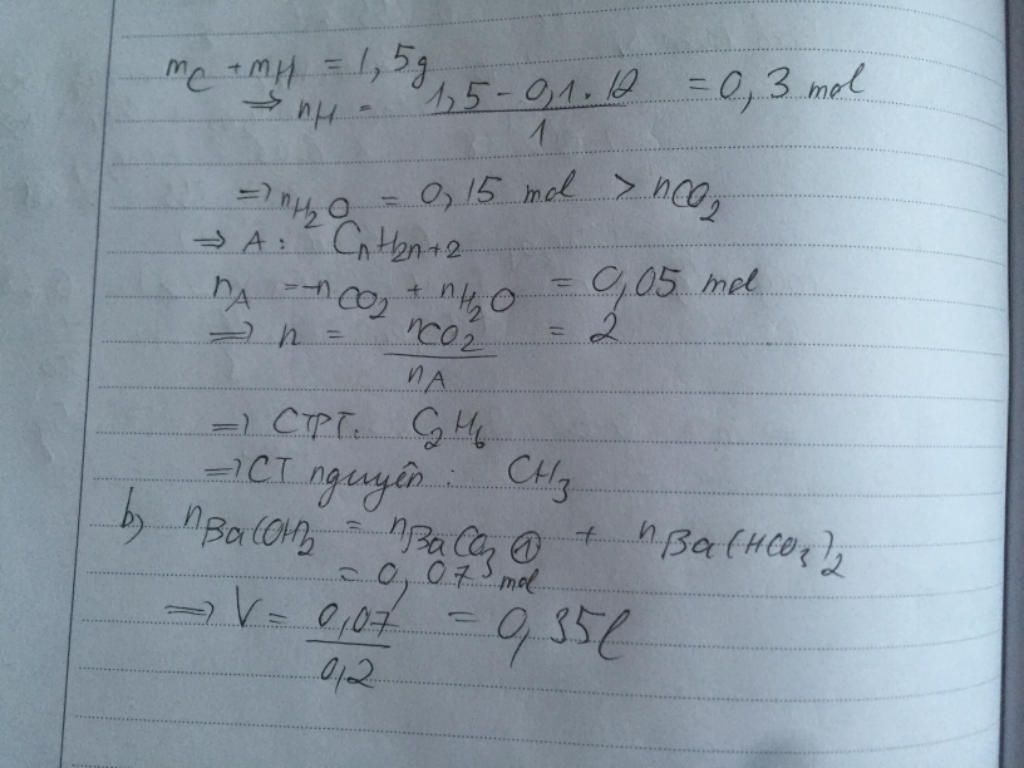 mC + mH = 1,5g
⇒ nH = (1,5 - 0,1.12)/1 = 0,3 mol
⇒ nH2O = 0,15 mol > nCO2
⇒ A: CnH2n+2
nA = -nCO2 + nH2O = 0,05 mol
⇒ n = nCO2/nA = 2
⇒ CTPT: C2H6
⇒ CT nguyên: CH3
b) nBa(OH)2 = nBaCO3 ① + nBa(HCO3)2
= 0,07 mol
⇒ V = 0,07/0,2 = 0,35l